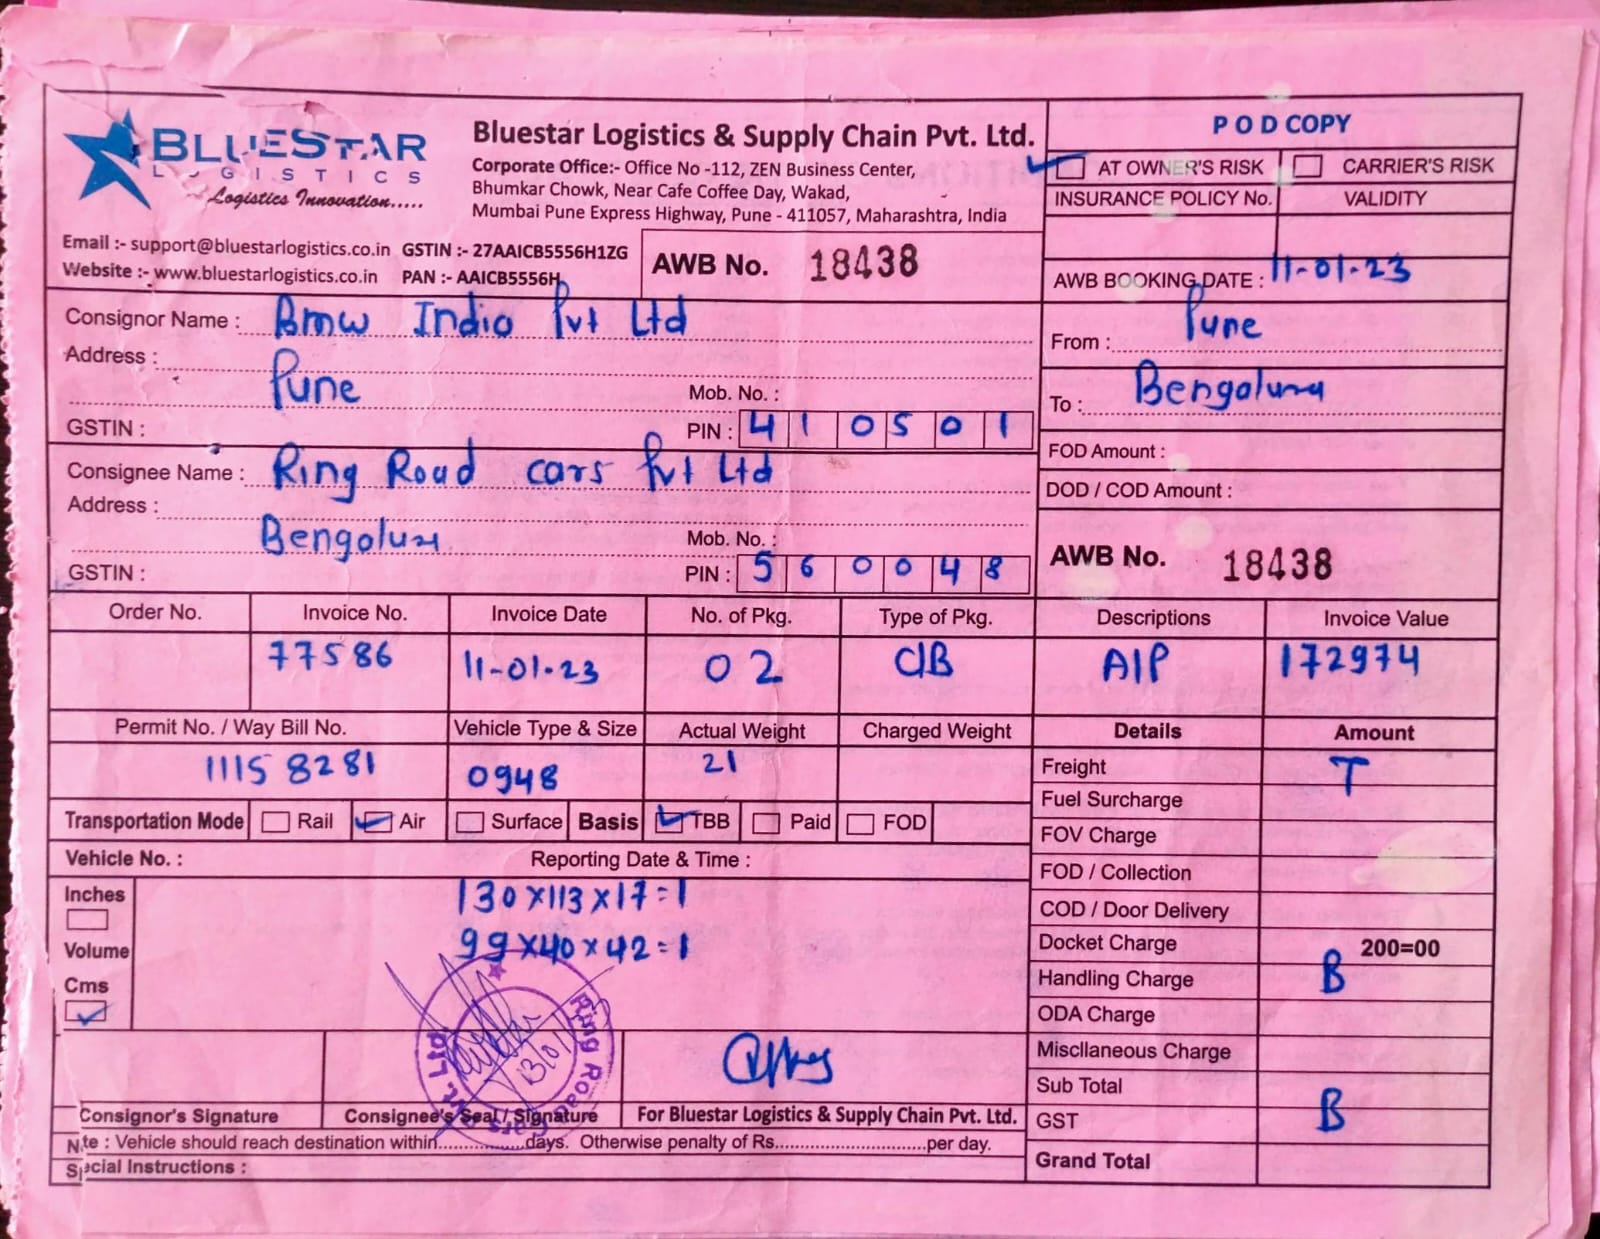 BLUESTAR
LOGISTICS
Logistics Innovation.....
Bluestar Logistics & Supply Chain Pvt. Ltd.
Corporate Office:- Office No -112, ZEN Business Center,
Bhumkar Chowk, Near Cafe Coffee Day, Wakad,
Mumbai Pune Express Highway, Pune - 411057, Maharashtra, India
Email :- support@bluestarlogistics.co.in GSTIN :- 27AAICB5556H1ZG
Website :- www.bluestarlogistics.co.in PAN :- AAICB5556H
AWB No. 18438
P O D COPY
AT OWNER'S RISK CARRIER'S RISK
INSURANCE POLICY No. VALIDITY
AWB BOOKING DATE : 11-01-23
Consignor Name : Bmw India Pvt Ltd
Address :
Pune
Mob. No. :
GSTIN :
PIN : 410501
From : Pune
To : Bengaluru
Consignee Name : Ring Road cars Pvt Ltd
Address :
Bengaluru
Mob. No. :
GSTIN :
PIN : 560048
FOD Amount :
DOD / COD Amount :
AWB No. 18438
Order No. Invoice No. Invoice Date No. of Pkg. Type of Pkg. Descriptions Invoice Value
77586 11-01-23 02 C/B A/P 172974
Permit No. / Way Bill No. Vehicle Type & Size Actual Weight Charged Weight Details Amount
1115 8281 0948 21
Transportation Mode Rail Air Surface Basis TBB Paid FOD
Vehicle No. : Reporting Date & Time :
Inches
Volume
Cms
130x113x17=1
99x40x42=1
Freight T
Fuel Surcharge
FOV Charge
FOD / Collection
COD / Door Delivery
Docket Charge 200=00
Handling Charge B
ODA Charge
Miscllaneous Charge
Sub Total
GST B
Grand Total
Ring Road Cars Pvt. Ltd.
13/01
Consignor's Signature Consignee's Seal / Signature For Bluestar Logistics & Supply Chain Pvt. Ltd.
Note : Vehicle should reach destination within................days. Otherwise penalty of Rs............................per day.
Special Instructions :